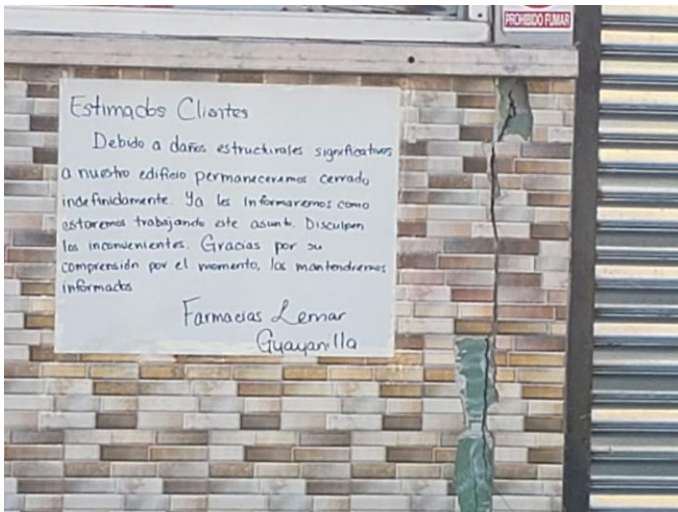 PROHIBIDO FUMAR
Estimados Clientes
Debido a daños estructurales significativos
a nuestro edificio permaneceremos cerrado
indefinidamente. Ya les Informaremos como
estaremos trabajando este asunto. Disculpen
los inconvenientes. Gracias por su
comprensión por el momento, los mantendremos
informados
Farmacias Lemar
Guayanilla